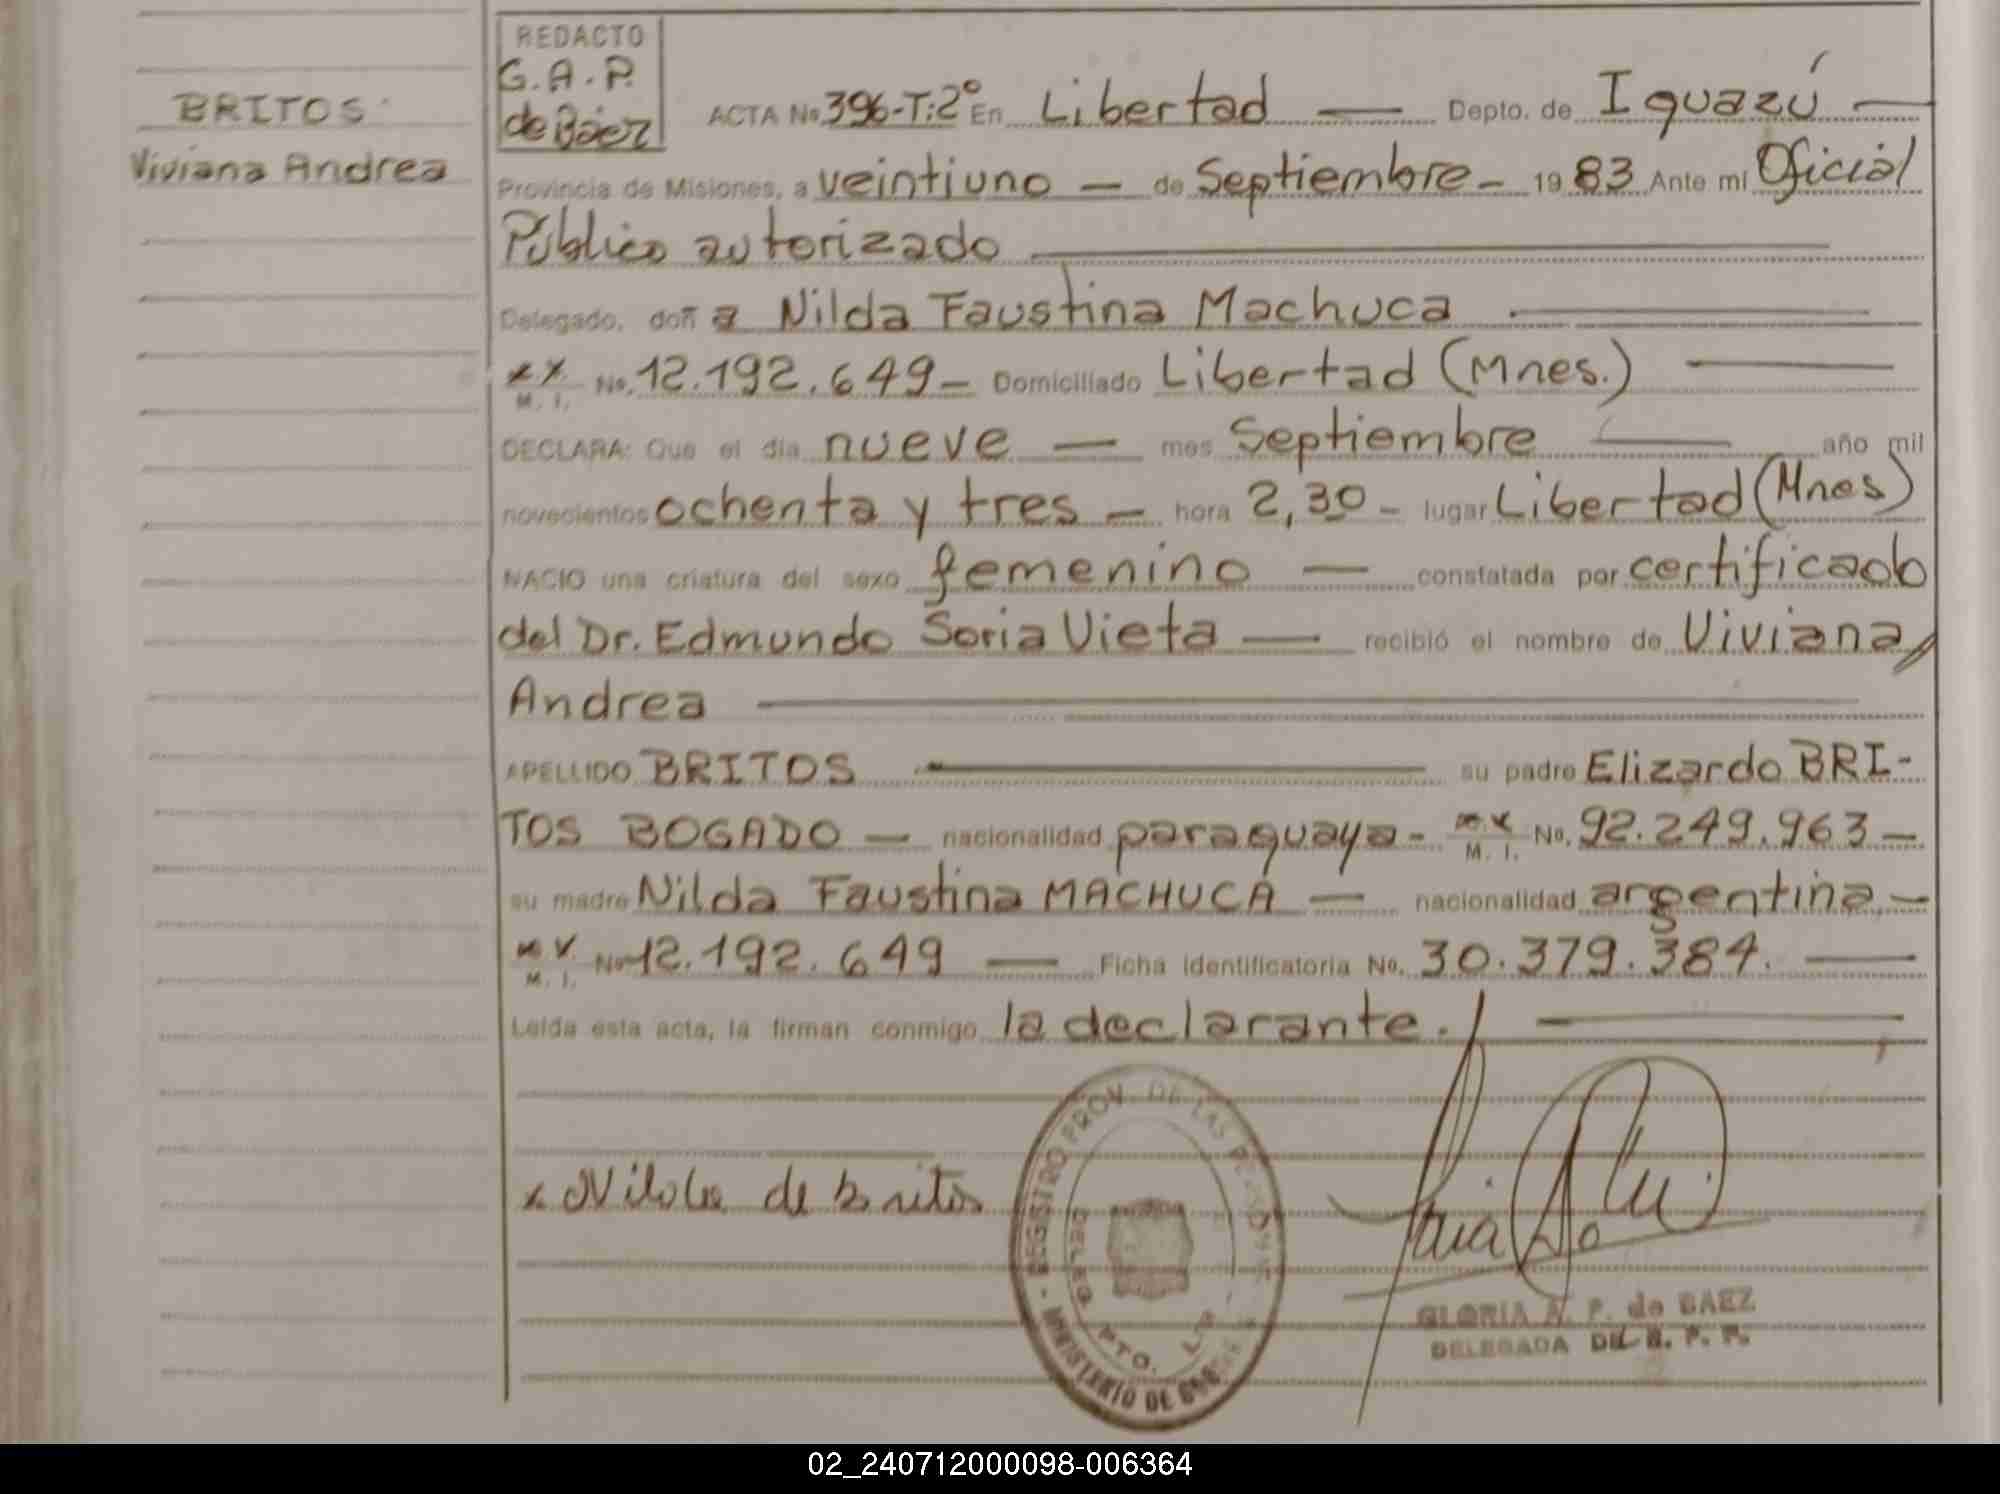 BRITOS
Viviana Andrea
REDACTO
G.A.P.
de Báez
ACTA No. 396-T:2° En Libertad — Depto. de Iguazú —
Provincia de Misiones, a veintiuno — de Septiembre - 19 83 Ante mi Oficial
Público autorizado
Delegado, doñ a Nilda Faustina Machuca
M. I. No. 12.192.649 - Domiciliado Libertad (Mnes.)
DECLARA: Que el día nueve — mes Septiembre — año mil
novecientos ochenta y tres - hora 2,30 - lugar Libertad (Mnes)
NACIO una criatura del sexo femenino — constatada por certificado
del Dr. Edmundo Soria Vieta — recibió el nombre de Viviana
Andrea
APELLIDO BRITOS — su padre Elizardo BRI-
TOS BOGADO — nacionalidad paraguaya - M. I. No. 92.249.963 -
su madre Nilda Faustina MACHUCA — nacionalidad argentina, -
M. I. No 12.192.649 — Ficha identificatoria No. 30.379.384. —
Leída esta acta, la firman conmigo la declarante.
x Nilda de Britos
REGISTRO PROV. DE LAS PERSONAS
DELEG
PTO.
MINISTERIO DE
GLORIA A. P. de BAEZ
DELEGADA DEL R. P. P.
02_240712000098-006364